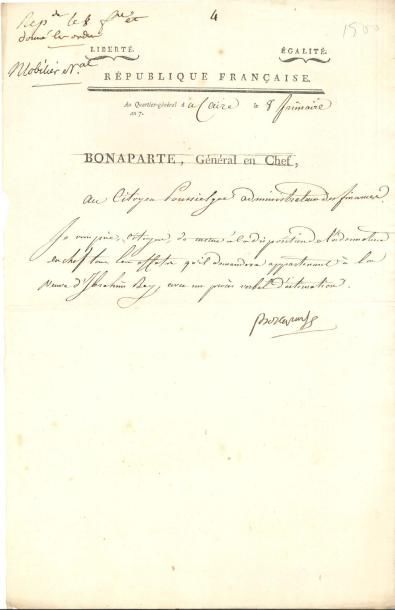 Rep. le 8 f.re et
donné les ordres
4
1500
Mobilier N.al
LIBERTÉ. ÉGALITÉ.
RÉPUBLIQUE FRANÇAISE.
Au Quartier-général du Caire le 8 frimaire
an 7.
BONAPARTE, Général en Chef,
au Citoyen Poussielgue administrateur des finances.
Je vous prie, citoyen, de mettre à la disposition de l'ordonnateur
en chef tous les effets qu'il demandera appartenant à la
veuve d'Ibrahim Bey, avec un procès verbal d'estimation.
Bonaparte